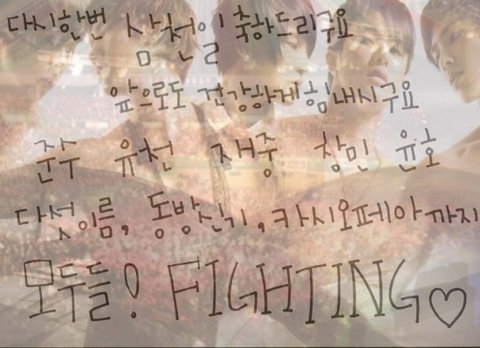 다시한번 삼천일 축하드리구요
앞으로도 건강하게 힘내시구요
준수 유천 재중 창민 윤호
다섯이름, 동방신기, 카시오페아까지
모두들! FIGHTING♡